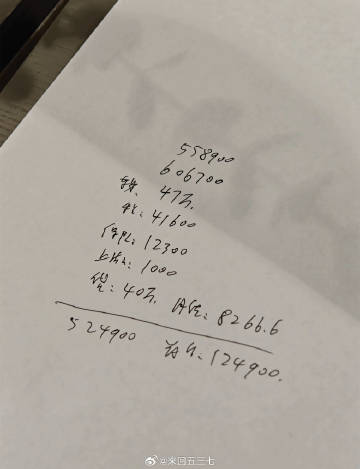 558900
606700
47万.
41600
12300
1000
贷: 40万, 月供: 8266.6
524900 首付: 124900.
@来回五三七